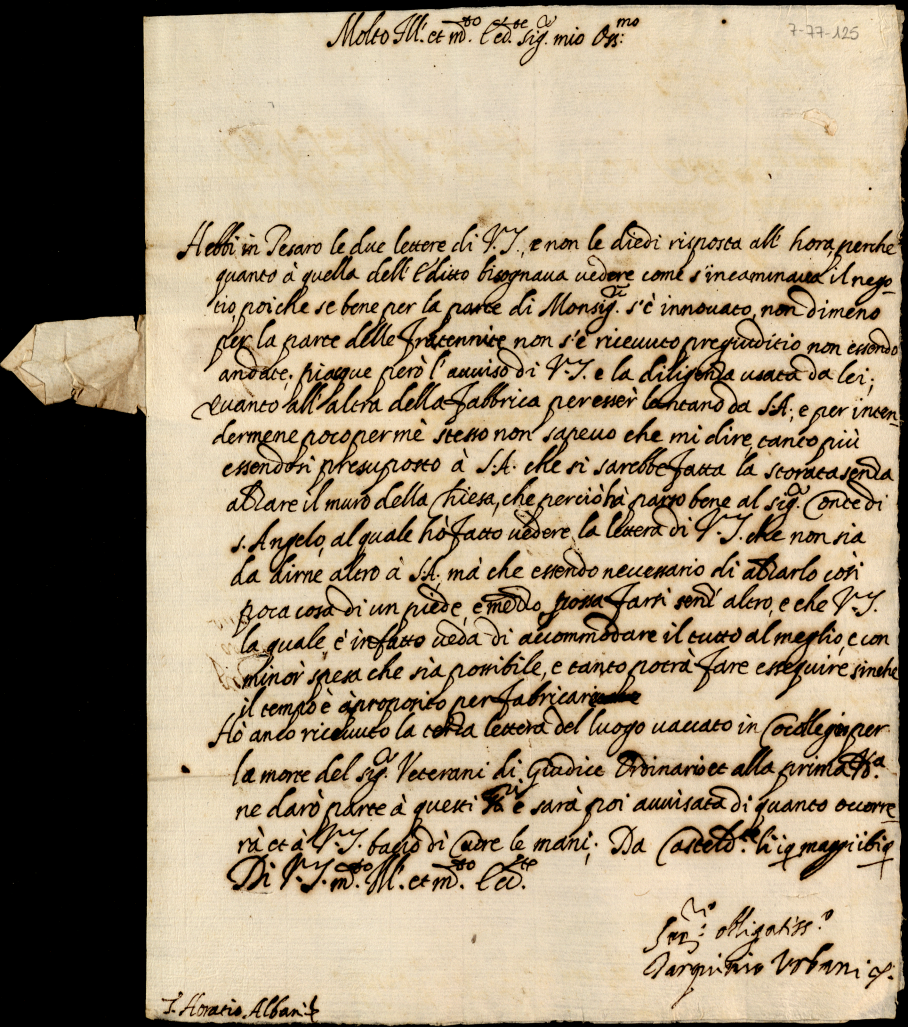 7-77-125
Molto Ill.re et m.to Ecc.te sig.r mio Oss.mo
Hebbi in Pesaro le due lettere di V.S., e non le diedi risposta all' hora, perche
quanto à quella dell' Editto bisognaua uedere come s'incaminaua il nego-
tio, poiche se bene per la parte di Monsig.r s'è innouato, non dimeno
per la parte delle fraternite non s'è riceuuto pregiuditio non essendo
andate, piacque però l'auuiso di V.S. e la diligenza usata da lei;
Quanto all' altra della fabbrica per esser lontano da S.A., e per inten-
dermene poco per mè stesso non sapeuo che mi dire, tanto più
essendosi presuposto à S.A. che si sarebbe fatta la senza
alzare il muro della Chiesa, che perciò hà parso bene al sig.r Conte di
s. Angelo, al quale hò fatto uedere la lettera di V.S. che non sia
da dirne altro à S.A. mà che essendo necessario di alzarlo così
poca cosa di un piede e mezzo possa farsi senz' altro, e che V.S.
la quale è in fatto ueda di accommodare il tutto al meglio, e con
minor spesa che sia possibile, e tanto potrà fare esseguire sinche
il tempo è à proposito per fabricare
Hò anco riceuuto la terza lettera del luogo uacato in Collegio per
la morte del sig.r Veterani di Giudice Ordinario et alla prima
ne darò parte à questi e sarà poi auuisata di quanto occorre-
rà et à V.S. bacio di Cuore le mani. Da Casteld.te li maggio
Di V.S. m.to Ill.re et m.to Ecc.te
Ser.re obligatiss.o
Tarquinio Urbani
S. Horatio Albani